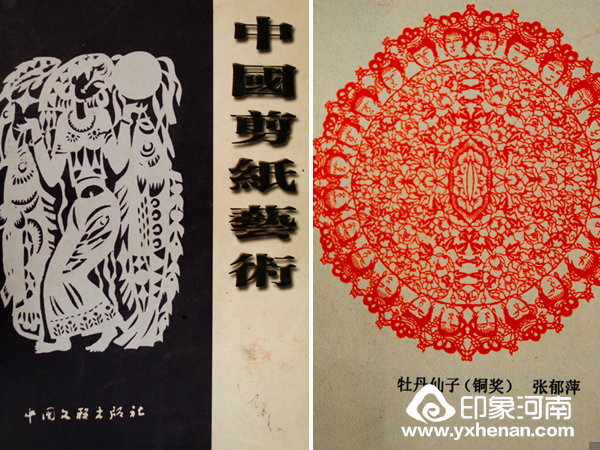 中國剪紙藝術
中国文联出版社
牡丹仙子（铜奖） 张郁萍
印象河南
www.yxhenan.com